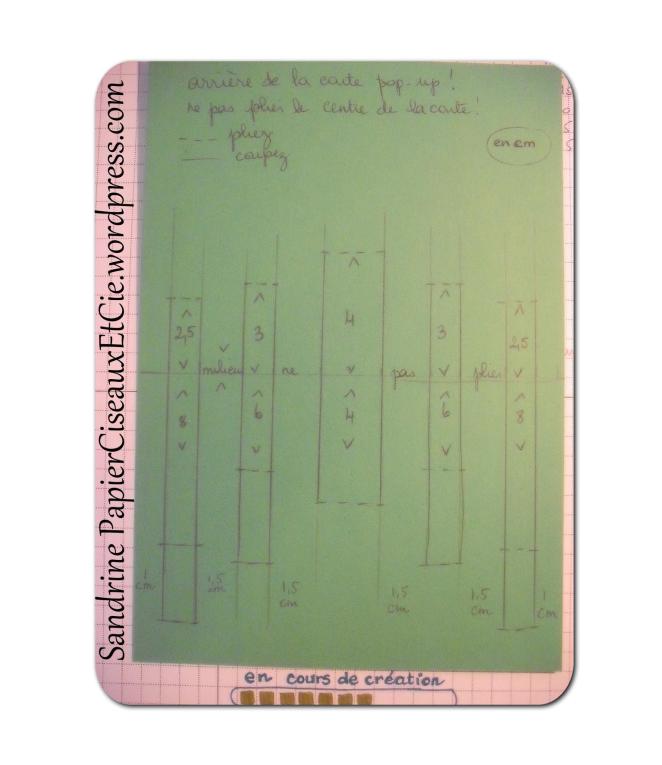 Sandrine PapierCiseauxEtCie.wordpress.com
arrière de la carte pop-up!
ne pas plier le centre de la carte!
--- pliez
— coupez
en cm
4
3 3
2,5 2,5
milieu ne pas plier
4
6 6
8 8
1 cm 1,5 cm 1,5 cm 1,5 cm 1,5 cm 1 cm
en cours de création